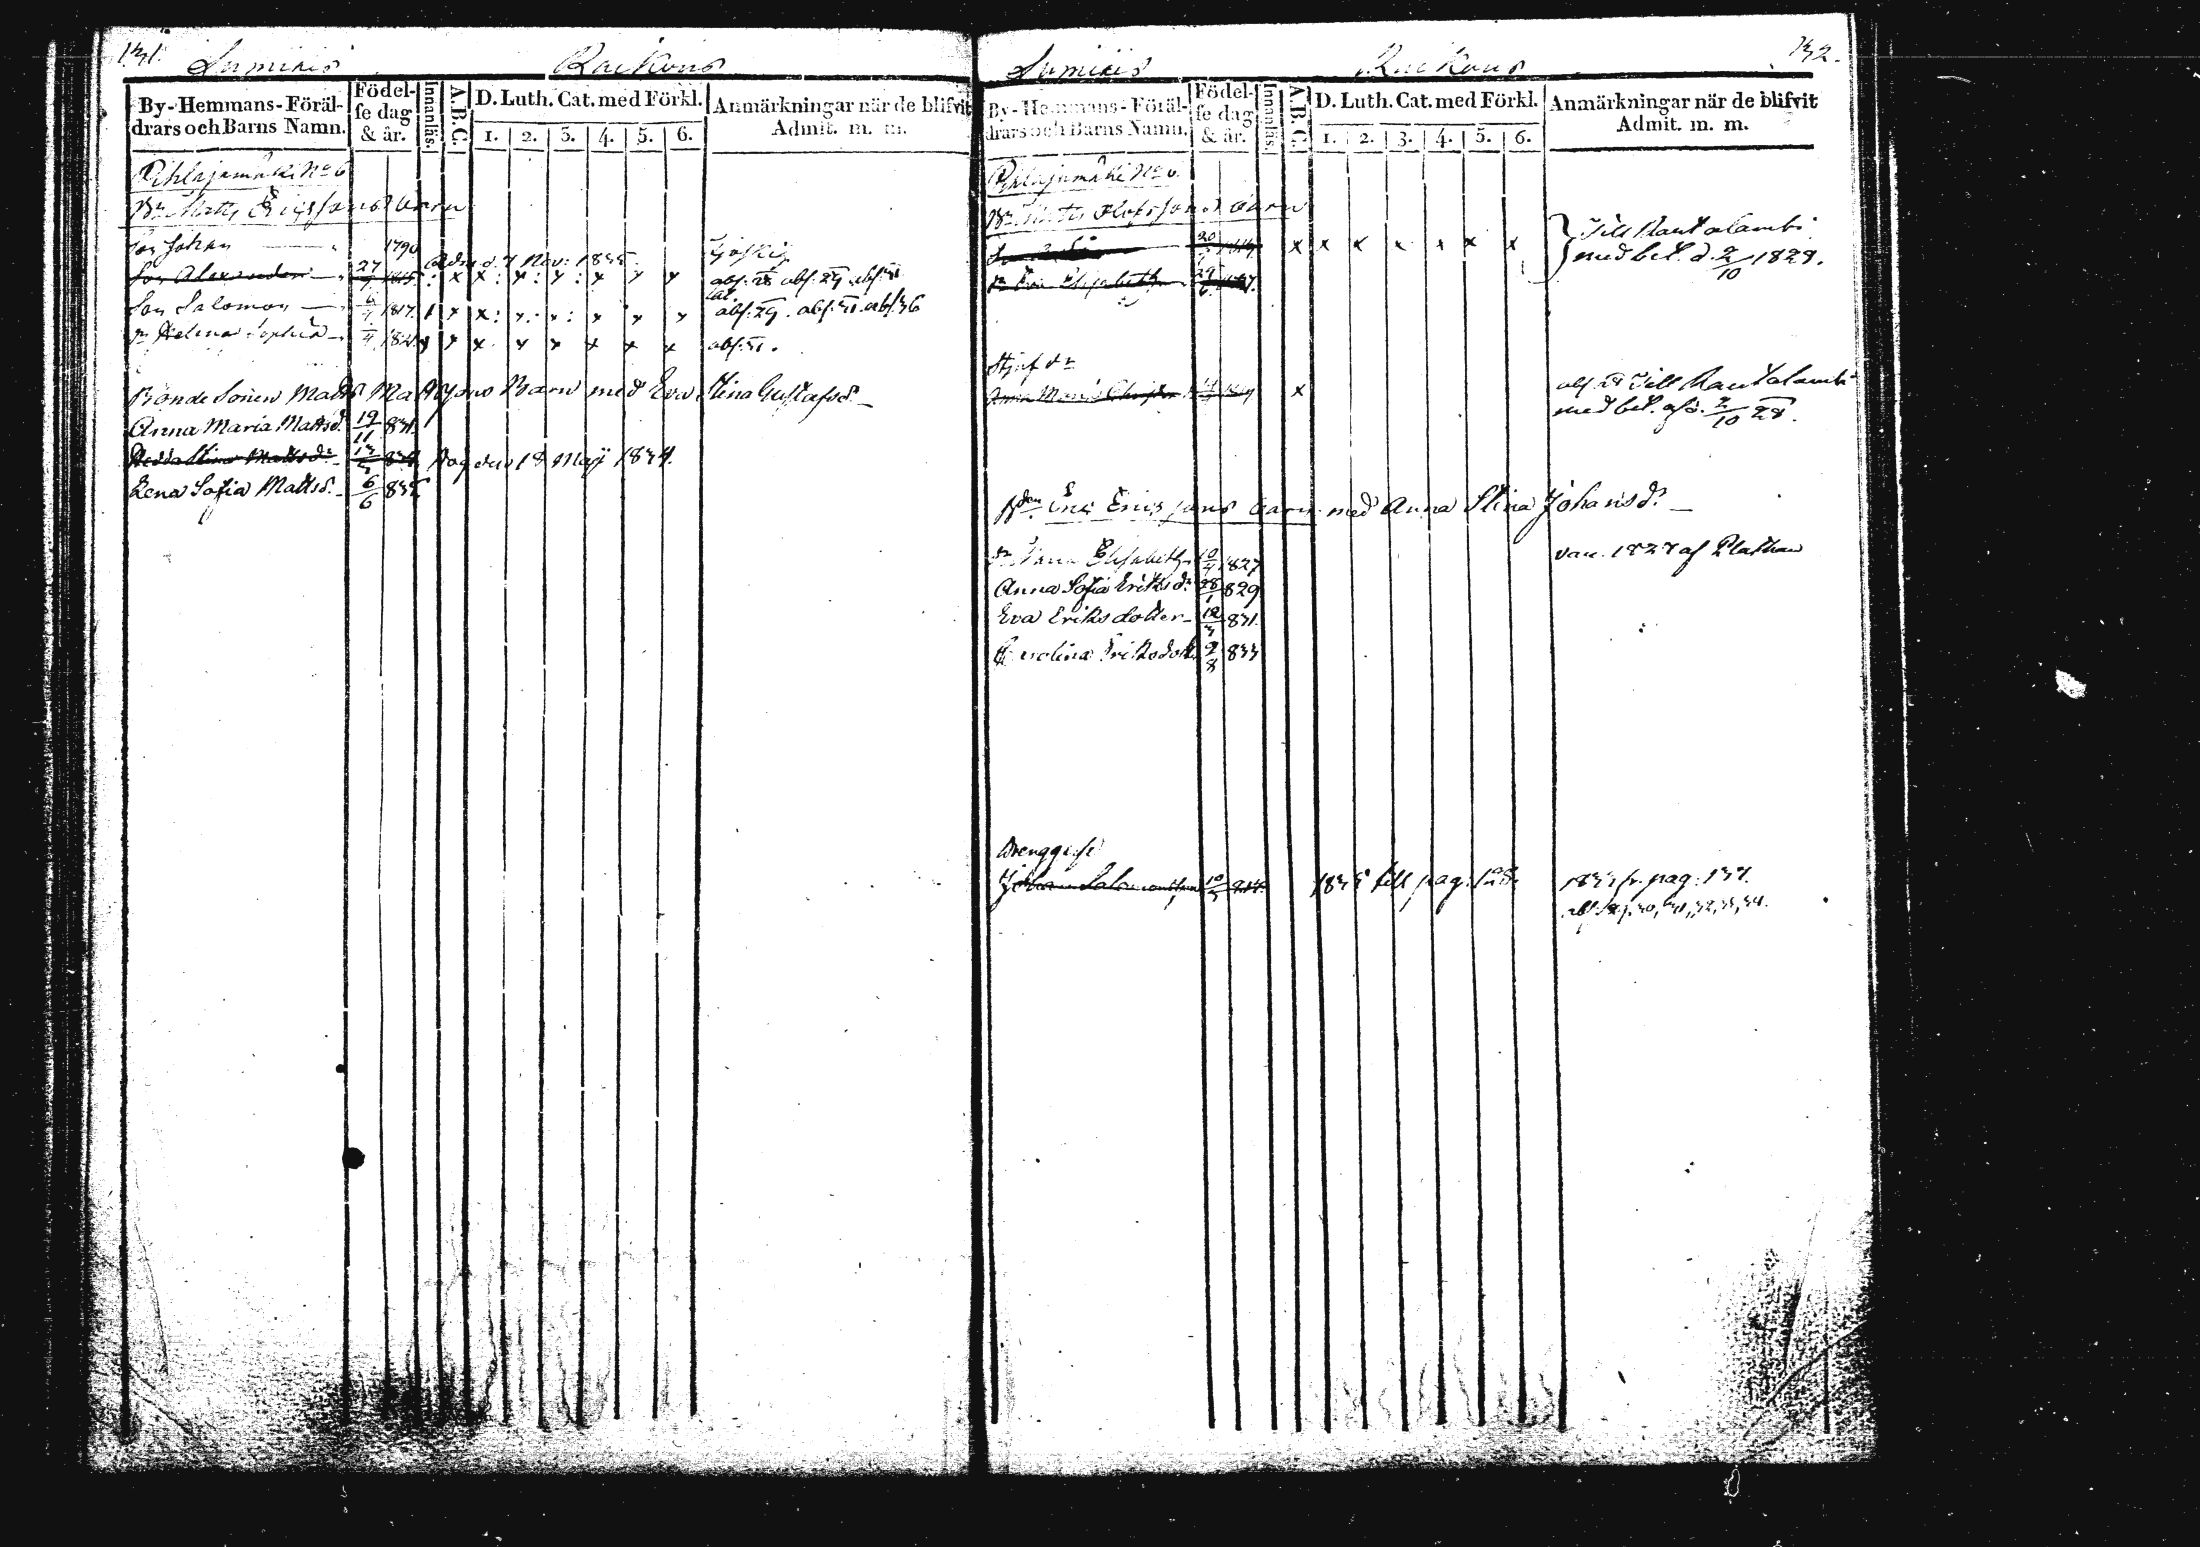 131. Lumikis Raikous
By-Hemmans-Föräl-
drars och Barns Namn.
Födel-
se dag
& år.
Innanläs.
A.B.C.
D. Luth. Cat. med Förkl.
1. 2. 3. 4. 5. 6.
Anmärkningar när de blifvit
Admit. m. m.
Pihlajamäki No 6
Bn Matts Ericssons barn
Son Johan 1790
Adm. d. 7 Nov: 1835.
Son Alexander 27/7 1815 x x x x x x x abs. 28 abs. 29 abs. 31
Son Salomon 6/7 1817 x x x x x x x abs. 29. abs. 31. abs. 36
Dr Helena Sophia 1/4 1821 x x x x x x x x abs. 31.
Bonde Sonen Matts Matssons Barn med Eva Stina Gustafsd.
Anna Maria Mattsd. 19/11 831.
Hedda Stina Mattsd. 13/3 834 Dog den 18 Maji 1834.
Lena Sofia Mattsd. 6/6 835
132.
Lumikis Raikous
By-Hemmans-Föräl-
drars och Barns Namn.
Födel-
se dag
& år.
Innanläs.
A.B.C.
D. Luth. Cat. med Förkl.
1. 2. 3. 4. 5. 6.
Anmärkningar när de blifvit
Admit. m. m.
Pihlajamäki No 6.
Bn Matts Olofssons barn
x x x x x x x Till Rautalambi
med bet. d. 2/10 1828.
Dr Eva Elisabeth
Styf dr
Anna Maria x Till Rautalambi
med bet. 2/10 28.
Bden Eric Ericssons barn med Anna Stina Johansd.
Dr Elisabeth 10/4 1827 vac. 1828 af Plathan
Anna Sofia Eriksd. 28/1 829
Eva Eriksdotter 12/3 831.
Carolina Eriksdott. 9/8 833
Drenggosse
Johan Salomonsson 10/3 1835 till pag. 1833 fr. pag. 137.
30, 31, 32, 33, 34.